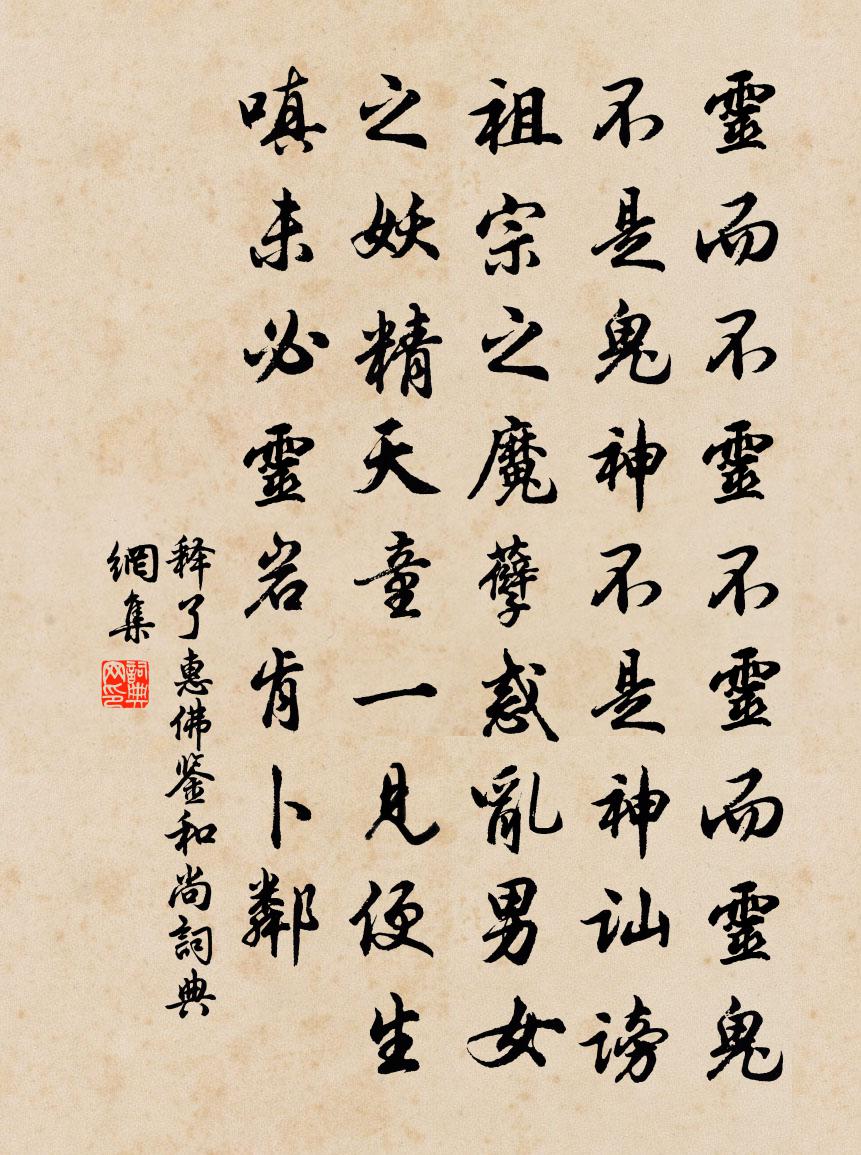 靈而不靈不靈而靈鬼
不是鬼神不是神訕謗
祖宗之魔孽惑亂男女
之妖精天童一見便生
嗔未必靈岩肯卜鄰
释了惠佛鉴和尚詞典
網集
詞典
网印